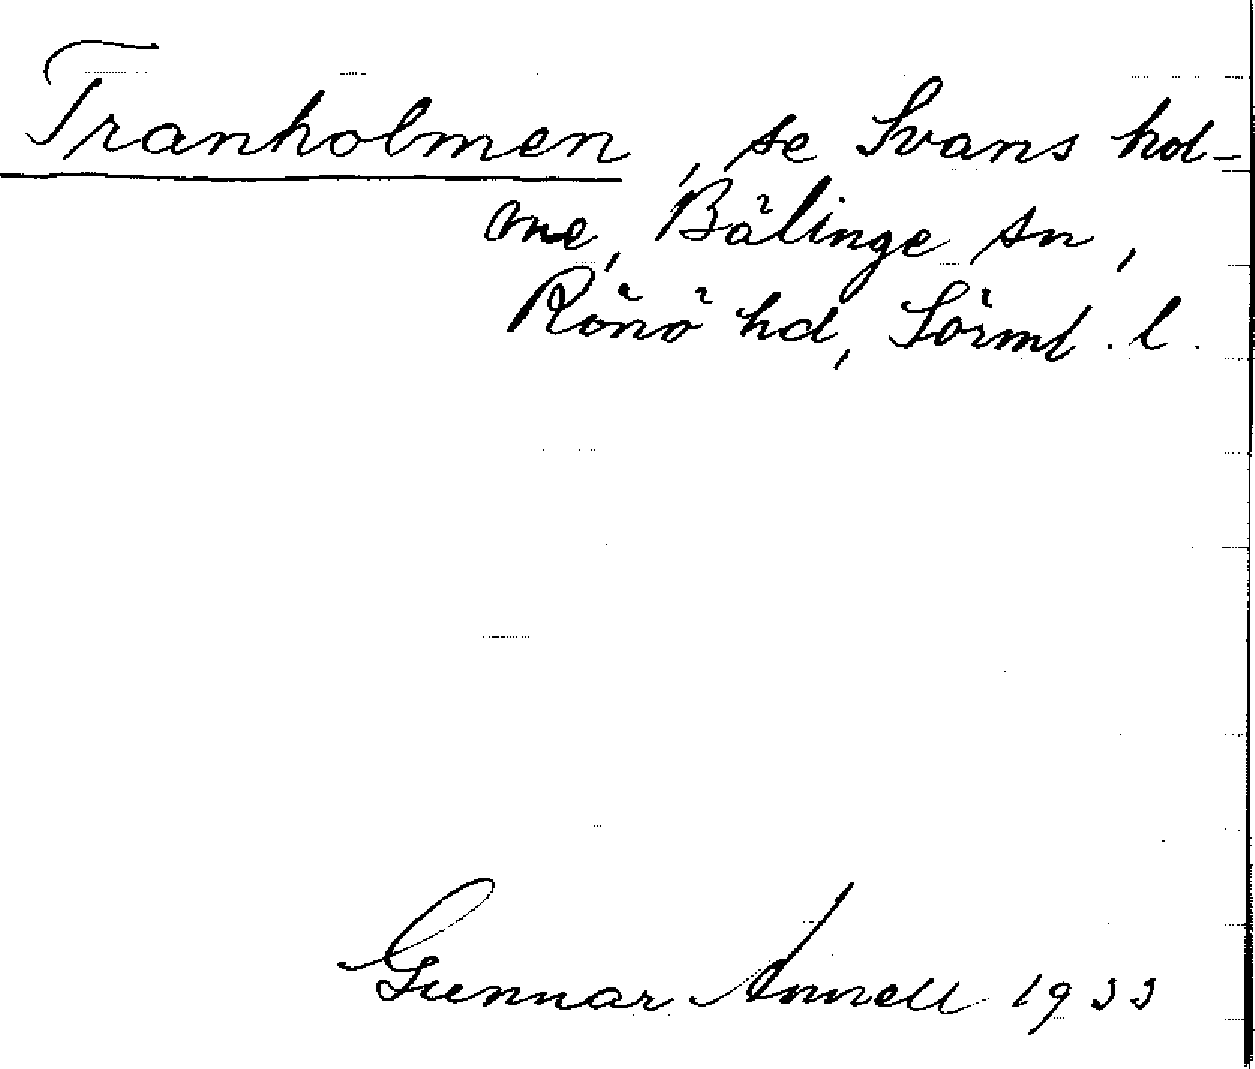 Tranholmen, se Svans hol-
me, Bälinge sn,
Rönö hd, Sörml. l.
Gunnar Annell 1933